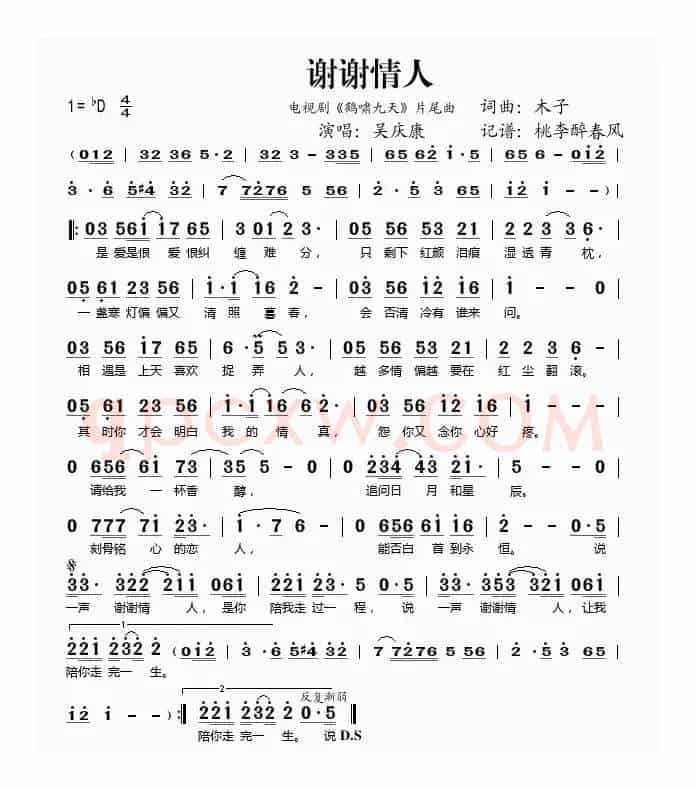 谢谢情人
1= ♭D 4/4
电视剧《鹤啸九天》片尾曲 词曲：木子
演唱：吴庆康 记谱：桃李醉春风
(012 | 32 36 5·2 | 32 3 - 335 | 65 62 1·5 | 656 - 012
3·6 5♯4 32 | 7 7276 56 | 2·5 3 65 | 12 1 - )
‖: 03 561 17 65 | 3 01 2 3· | 05 56 53 21 | 2 23 3 6·
是 爱是恨 爱 恨纠 缠 难 分， 只 剩下 红颜 泪痕 湿 透 青 枕，
05 61 23 56 | 1·1 16 2 - | 03 56 12 16 | 1 - - 0
一 盏寒 灯偏 偏又 清 照 暮 春， 会 否清 冷有 谁来 问。
03 56 17 65 | 6·5 53· | 05 56 53 21 | 2 23 6 -
相 遇是 上天 喜欢 捉 弄 人， 越 多情 偏越 要在 红 尘 翻 滚。
05 61 23 56 | 1·1 16 6 2 | 03 56 12 16 | 5 - - 0
其 时你 才会 明白 我 的 情 真， 怨 你又 念你 心好 疼。
0 656 61 73 | 35 5 - 0 | 0 234 43 21 | 5 - - 0
请给我 一 杯香 醇， 追问日 月 和星 辰。
0 777 71 23· | 1·7 6 - | 0 656 61 16 | 2 - - 0·5
刻骨铭 心 的恋 人， 能否白 首 到永 恒。 说
33· 322 211 061 | 33· 23·5 0·5 | 33· 353 321 061
一声 谢谢情 人，是你 陪我走 过一 程，说 一声 谢谢情 人，让我
1
221 232 2 (012 | 3·6 5♯4 32 | 7 7276 56 | 2·5 3 65
陪你走 完一 生。
2
反复渐弱
12 1 - ) :‖ 221 232 2 0·5 ‖
陪你走 完一 生。 说 D.S
qpcxw.COM